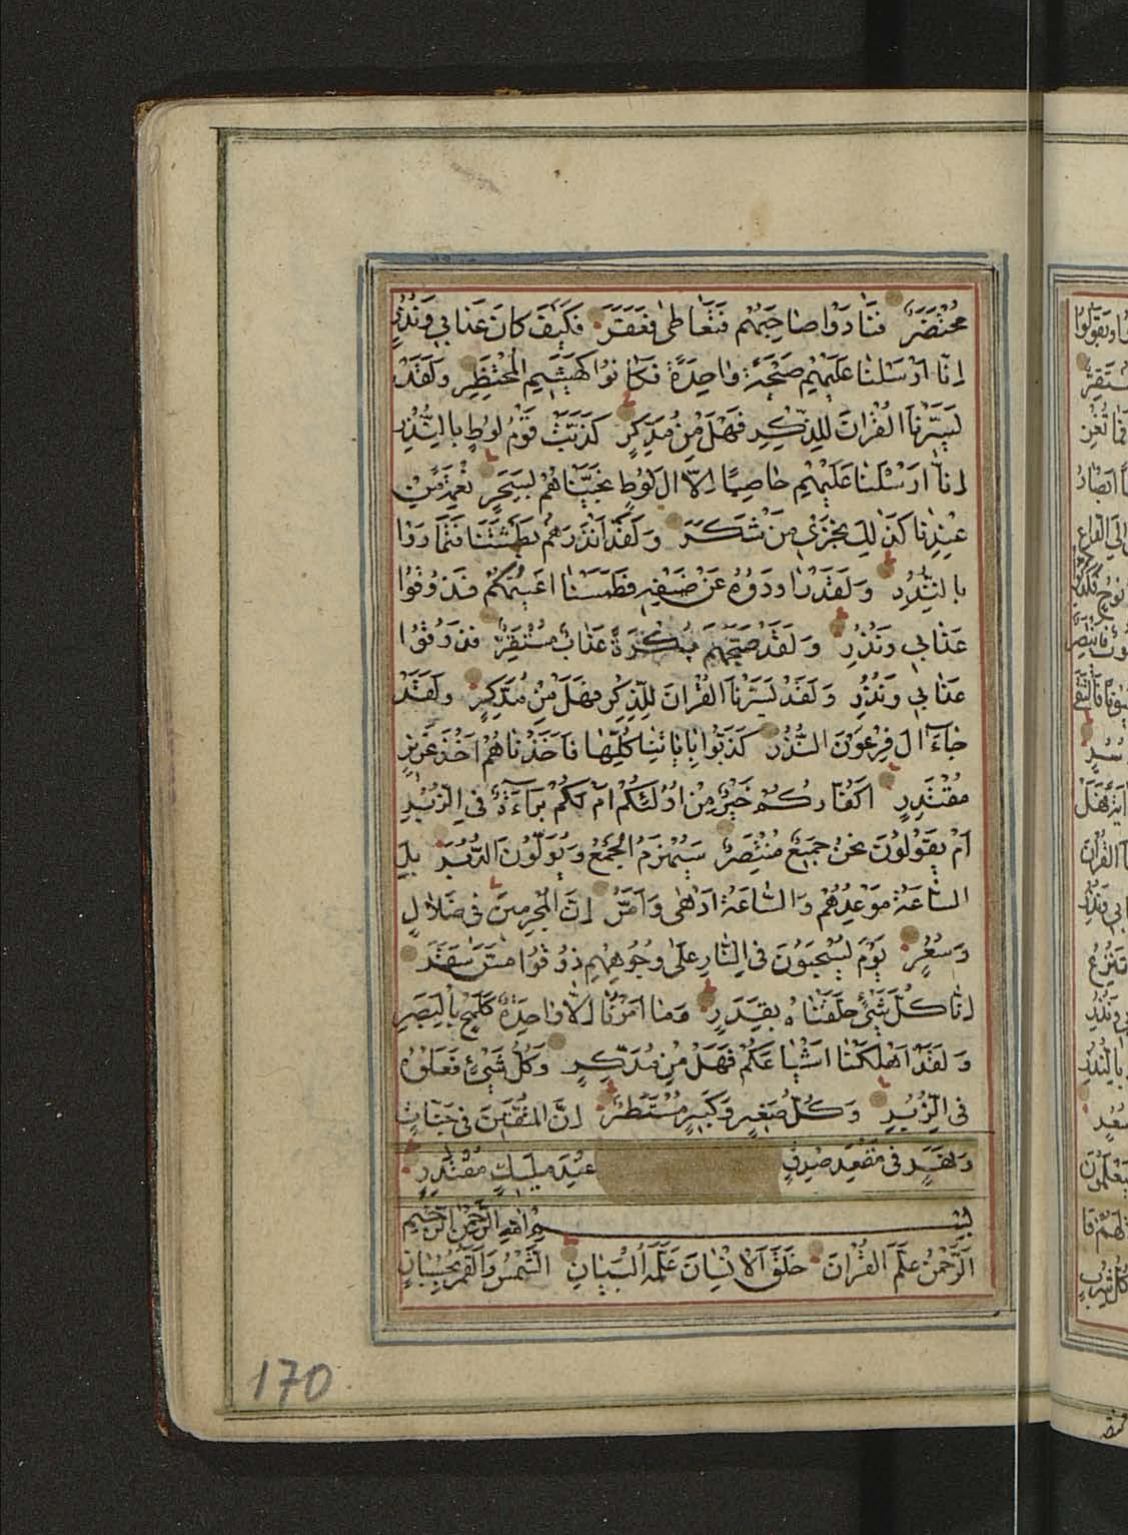 مُحْتَضَرٌ فَنَادَوْا صَاحِبَهُمْ فَتَعَاطَىٰ فَعَقَرَ فَكَيْفَ كَانَ عَذَابِي وَنُذُرِ
اِنَّا اَرْسَلْنَا عَلَيْهِمْ صَيْحَةً وَاحِدَةً فَكَانُوا كَهَشِيمِ الْمُحْتَظِرِ وَلَقَدْ
يَسَّرْنَا الْقُرْاٰنَ لِلذِّكْرِ فَهَلْ مِنْ مُدَّكِرٍ كَذَّبَتْ قَوْمُ لُوطٍ بِالنُّذُرِ
اِنَّا اَرْسَلْنَا عَلَيْهِمْ حَاصِبًا اِلَّا اٰلَ لُوطٍ نَجَّيْنَاهُمْ بِسَحَرٍ نِعْمَةً مِنْ
عِنْدِنَا كَذٰلِكَ نَجْزِي مَنْ شَكَرَ وَلَقَدْ اَنْذَرَهُمْ بَطْشَتَنَا فَتَمَارَوْا
بِالنُّذُرِ وَلَقَدْ رَاوَدُوهُ عَنْ ضَيْفِهِ فَطَمَسْنَا اَعْيُنَهُمْ فَذُوقُوا
عَذَابِي وَنُذُرِ وَلَقَدْ صَبَّحَهُمْ بُكْرَةً عَذَابٌ مُسْتَقِرٌّ فَذُوقُوا
عَذَابِي وَنُذُرِ وَلَقَدْ يَسَّرْنَا الْقُرْاٰنَ لِلذِّكْرِ فَهَلْ مِنْ مُدَّكِرٍ وَلَقَدْ
جَاءَ اٰلَ فِرْعَوْنَ النُّذُرُ كَذَّبُوا بِاٰيَاتِنَا كُلِّهَا فَاَخَذْنَاهُمْ اَخْذَ عَزِيزٍ
مُقْتَدِرٍ اَكُفَّارُكُمْ خَيْرٌ مِنْ اُولٰئِكُمْ اَمْ لَكُمْ بَرَاءَةٌ فِي الزُّبُرِ
اَمْ يَقُولُونَ نَحْنُ جَمِيعٌ مُنْتَصِرٌ سَيُهْزَمُ الْجَمْعُ وَيُوَلُّونَ الدُّبُرَ بَلِ
السَّاعَةُ مَوْعِدُهُمْ وَالسَّاعَةُ اَدْهٰى وَاَمَرُّ اِنَّ الْمُجْرِمِينَ فِي ضَلَالٍ
وَسُعُرٍ يَوْمَ يُسْحَبُونَ فِي النَّارِ عَلٰى وُجُوهِهِمْ ذُوقُوا مَسَّ سَقَرَ
اِنَّا كُلَّ شَيْءٍ خَلَقْنَاهُ بِقَدَرٍ وَمَا اَمْرُنَا اِلَّا وَاحِدَةٌ كَلَمْحٍ بِالْبَصَرِ
وَلَقَدْ اَهْلَكْنَا اَشْيَاعَكُمْ فَهَلْ مِنْ مُدَّكِرٍ وَكُلُّ شَيْءٍ فَعَلُوهُ
فِي الزُّبُرِ وَكُلُّ صَغِيرٍ وَكَبِيرٍ مُسْتَطَرٌ اِنَّ الْمُتَّقِينَ فِي جَنَّاتٍ
وَنَهَرٍ فِي مَقْعَدِ صِدْقٍ عِنْدَ مَلِيكٍ مُقْتَدِرٍ
بِسْمِ اللهِ الرَّحْمٰنِ الرَّحِيمِ
اَلرَّحْمٰنُ عَلَّمَ الْقُرْاٰنَ خَلَقَ الْاِنْسَانَ عَلَّمَهُ الْبَيَانَ الشَّمْسُ وَالْقَمَرُ بِحُسْبَانٍ
170